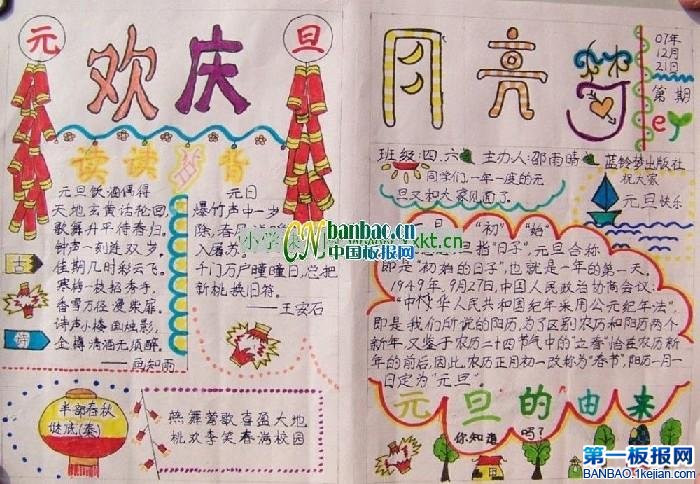 元
旦
欢庆
读读背背
元旦饮酒偶得
天地玄黄话轮回,
歌舞升平待春归。
钟声一刻连双岁,
佳期几时彩云飞。
寒梅一枝招香手,
香雪万径漫柴扉。
诗声小楼画烛影,
金樽清酒无须醉。
古
诗
元日
爆竹声中一岁
除,春风
入屠苏。
千门万户曈曈日,总把
新桃换旧符。
——王安石
半部春秋
熊舞莺歌喜盈大地
桃欢李笑春满校园
月亮梦
07年
12月
21日
第 期
班级:四.六 主办人:邵雨晴 蓝铃梦出版社
同学们,一年一度的元
旦又和大家见面了。
祝大家
元旦快乐
"初" "始"
旦指"日子",元旦合称
即是"初始的日子",也就是一年的第一天。
1949年,9月27日,中国人民政治协商会议:
"中华人民共和国纪年采用公元纪年法"
即是我们所说的阳历,为了区别农历和阳历两个
新年,又鉴于农历二十四节气中的"立春"恰在农历新
年的前后,因此,农历正月初一改称为"春节",阳历一月一
日定为"元旦"。
元旦的由来
你知道 吗?
banbao.cn
CN中国板报网
xkt.cn
第一板报网
BANBAO.1kejian.com